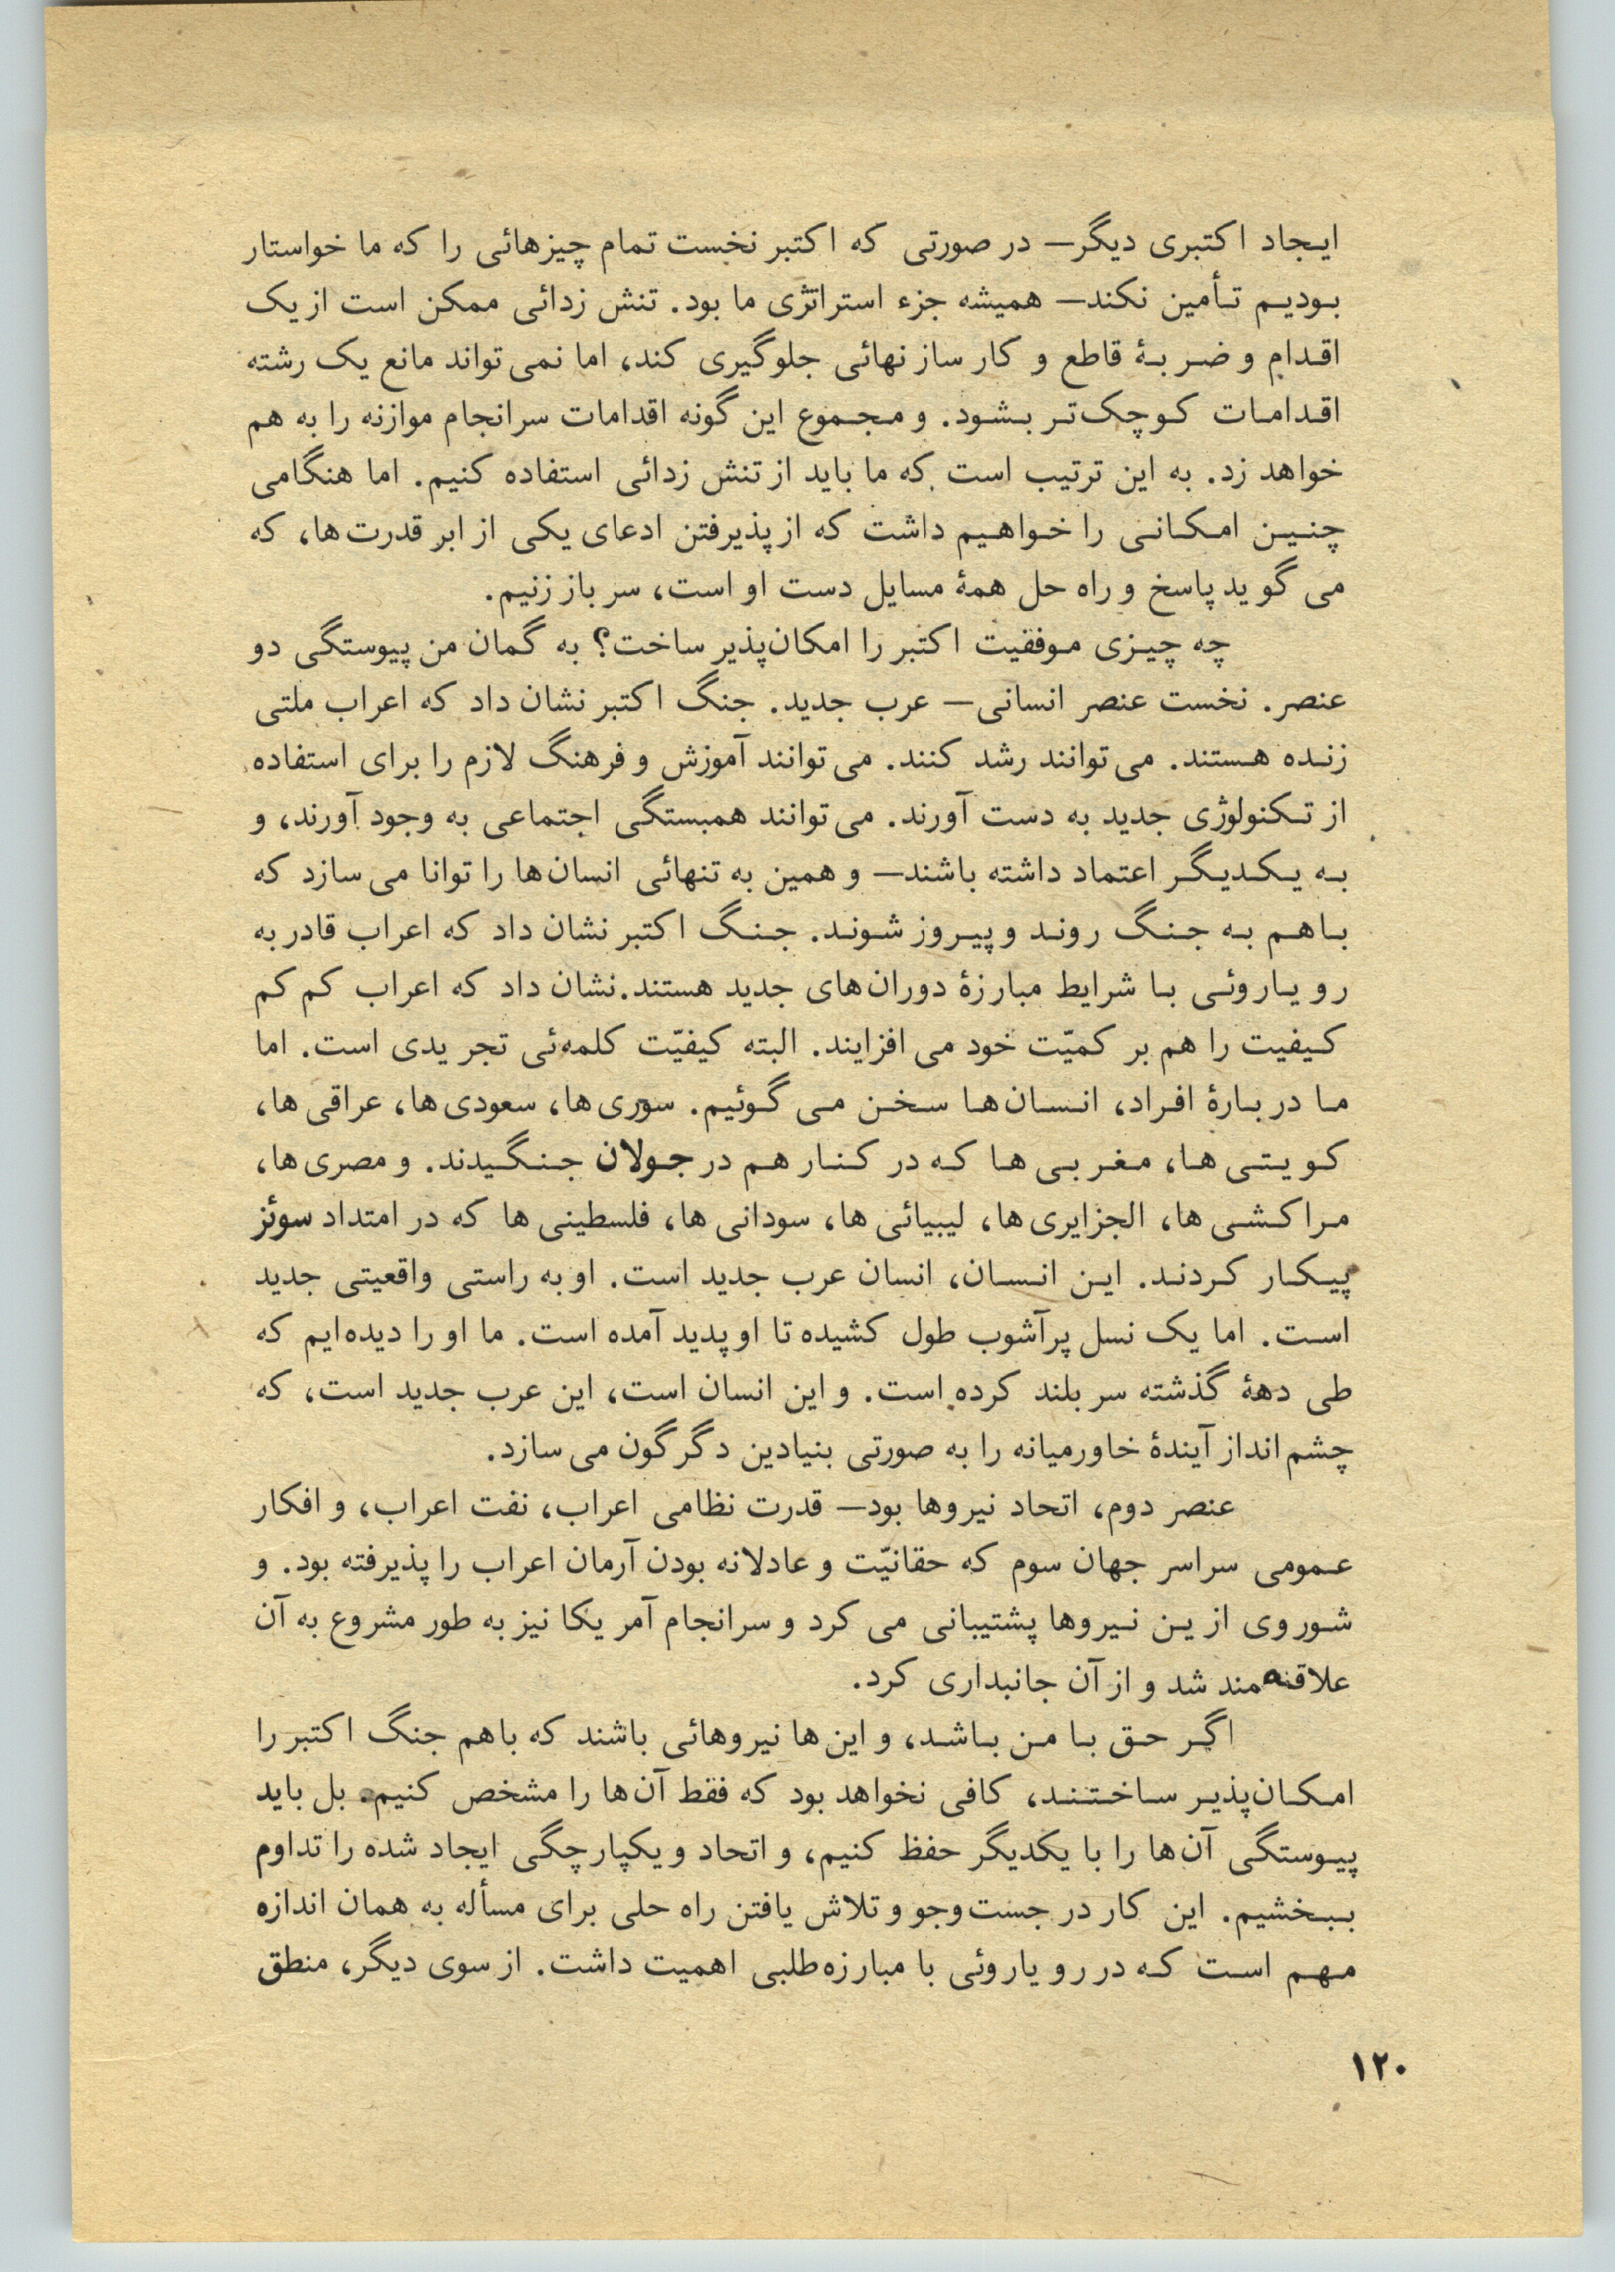 ایجاد اکتبری دیگر— در صورتی که اکتبر نخست تمام چیزهائی را که ما خواستار
بودیم تأمین نکند— همیشه جزء استراتژی ما بود. تنش زدائی ممکن است از یک
اقدام و ضربهٔ قاطع و کارساز نهائی جلوگیری کند، اما نمی تواند مانع یک رشته
اقدامات کوچک‌تر بشود. و مجموع این گونه اقدامات سرانجام موازنه را به هم
خواهد زد. به این ترتیب است که ما باید از تنش زدائی استفاده کنیم. اما هنگامی
چنین امکانی را خواهیم داشت که از پذیرفتن ادعای یکی از ابر قدرت‌ها، که
می گوید پاسخ و راه حل همهٔ مسایل دست او است، سر باز زنیم.
چه چیزی موفقیت اکتبر را امکان‌پذیر ساخت؟ به گمان من پیوستگی دو
عنصر. نخست عنصر انسانی— عرب جدید. جنگ اکتبر نشان داد که اعراب ملتی
زنده هستند. می توانند رشد کنند. می توانند آموزش و فرهنگ لازم را برای استفاده
از تکنولوژی جدید به دست آورند. می توانند همبستگی اجتماعی به وجود آورند، و
به یکدیگر اعتماد داشته باشند— و همین به تنهائی انسان‌ها را توانا می سازد که
باهم به جنگ روند و پیروز شوند. جنگ اکتبر نشان داد که اعراب قادر به
رویاروئی با شرایط مبارزهٔ دوران‌های جدید هستند. نشان داد که اعراب کم کم
کیفیت را هم بر کمیّت خود می افزایند. البته کیفیّت کلمه‌ئی تجریدی است. اما
ما دربارهٔ افراد، انسان‌ها سخن می گوئیم. سوری‌ها، سعودی‌ها، عراقی‌ها،
کویتی‌ها، مغربی‌ها که در کنار هم در جولان جنگیدند. و مصری‌ها،
مراکشی‌ها، الجزایری‌ها، لیبیائی‌ها، سودانی‌ها، فلسطینی‌ها که در امتداد سوئز
پیکار کردند. این انسان، انسان عرب جدید است. او به راستی واقعیتی جدید
است. اما یک نسل پرآشوب طول کشیده تا او پدید آمده است. ما او را دیده‌ایم که
طی دههٔ گذشته سر بلند کرده است. و این انسان است، این عرب جدید است، که
چشم انداز آیندهٔ خاورمیانه را به صورتی بنیادین دگرگون می سازد.
عنصر دوم، اتحاد نیروها بود— قدرت نظامی اعراب، نفت اعراب، و افکار
عمومی سراسر جهان سوم که حقانیّت و عادلانه بودن آرمان اعراب را پذیرفته بود. و
شوروی از ین نیروها پشتیبانی می کرد و سرانجام آمریکا نیز به طور مشروع به آن
علاقه‌مند شد و از آن جانبداری کرد.
اگر حق با من باشد، و این‌ها نیروهائی باشند که باهم جنگ اکتبر را
امکان‌پذیر ساختند، کافی نخواهد بود که فقط آن‌ها را مشخص کنیم. بل باید
پیوستگی آن‌ها را با یکدیگر حفظ کنیم، و اتحاد و یکپارچگی ایجاد شده را تداوم
ببخشیم. این کار در جست‌وجو و تلاش یافتن راه حلی برای مسأله به همان اندازه
مهم است که در رویاروئی با مبارزه‌طلبی اهمیت داشت. از سوی دیگر، منطق
۱۲۰